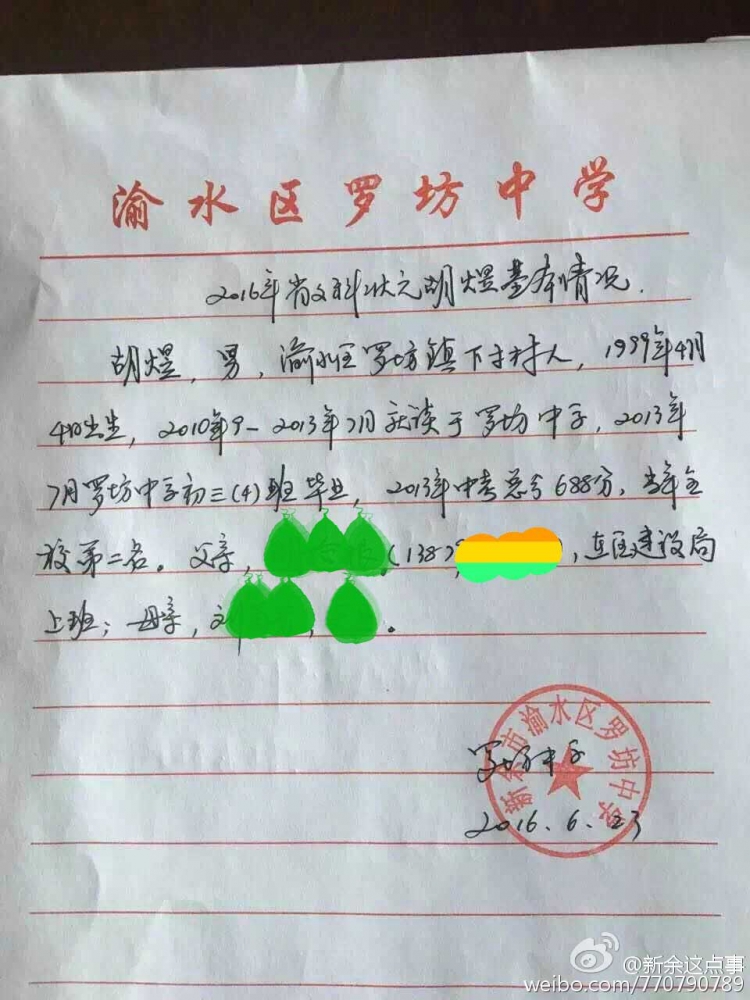 渝水区罗坊中学
2016年省文科状元胡煜基本情况.
胡煜，男，渝水区罗坊镇下村人，1999年4月
4日出生，2010年9—2013年7月就读于罗坊中学，2013年
7月罗坊中学初三(4)班毕业，2013年中考总分688分，当年全
校第二名。父亲，(138 ),在区建设局
上班；母亲，文 , 。
罗坊中学
2016.6.23
新余市渝水区罗坊中学
@新余这点事
weibo.com/770790789